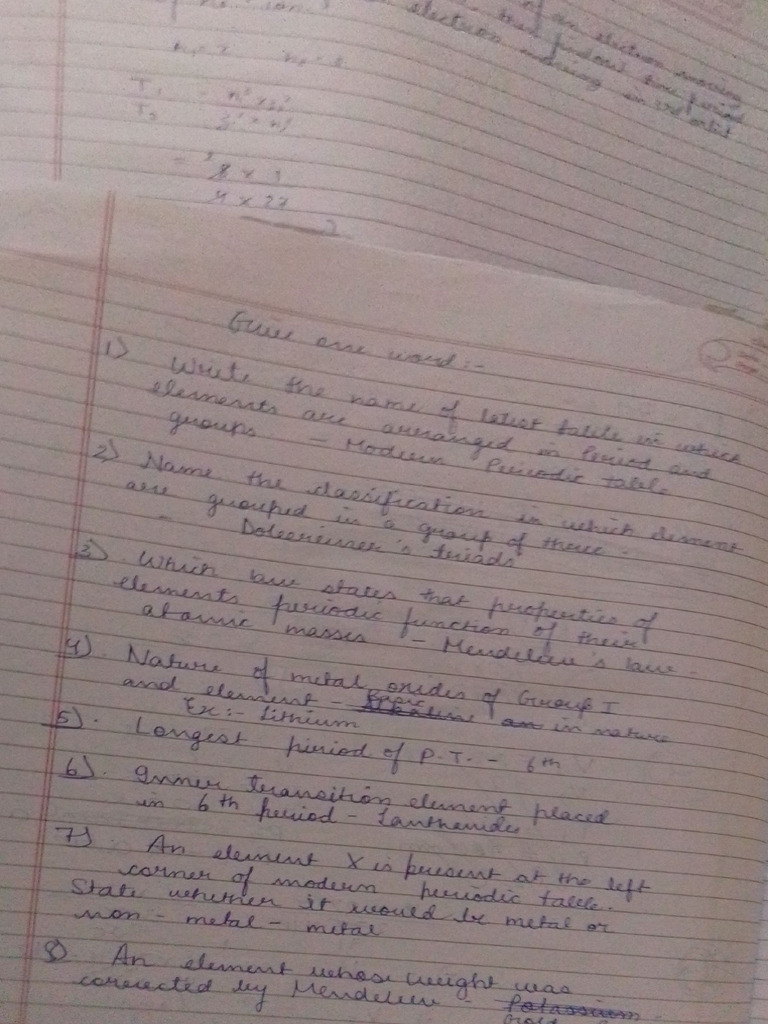 of an electron moving
electron
T1 = n1³ × z2²
T2
= 8 × 1
4 × 27
Give one word :-
1) Write the name of latest table in which
elements are arranged in Period and
groups - Modern Periodic table
2) Name the classification in which element
are grouped in a group of three.
- Dobereiner's triads
3) Which law states that properties of
elements periodic function of their
atomic masses - Mendeleev's law.
4). Nature of metal oxides of Group I
and element - Basic in nature
Ex:- Lithium
5). Longest period of P.T. - 6th
6). Inner transition element placed
in 6th period - Lanthenides
7). An element X is present at the left
corner of modern periodic table.
State whether it would be metal or
non - metal - metal
8). An element whose weight was
corrected by Mendeleev - Potassium
Gold